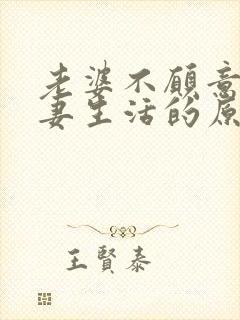 老婆不愿意
妻生活的原
王賢泰